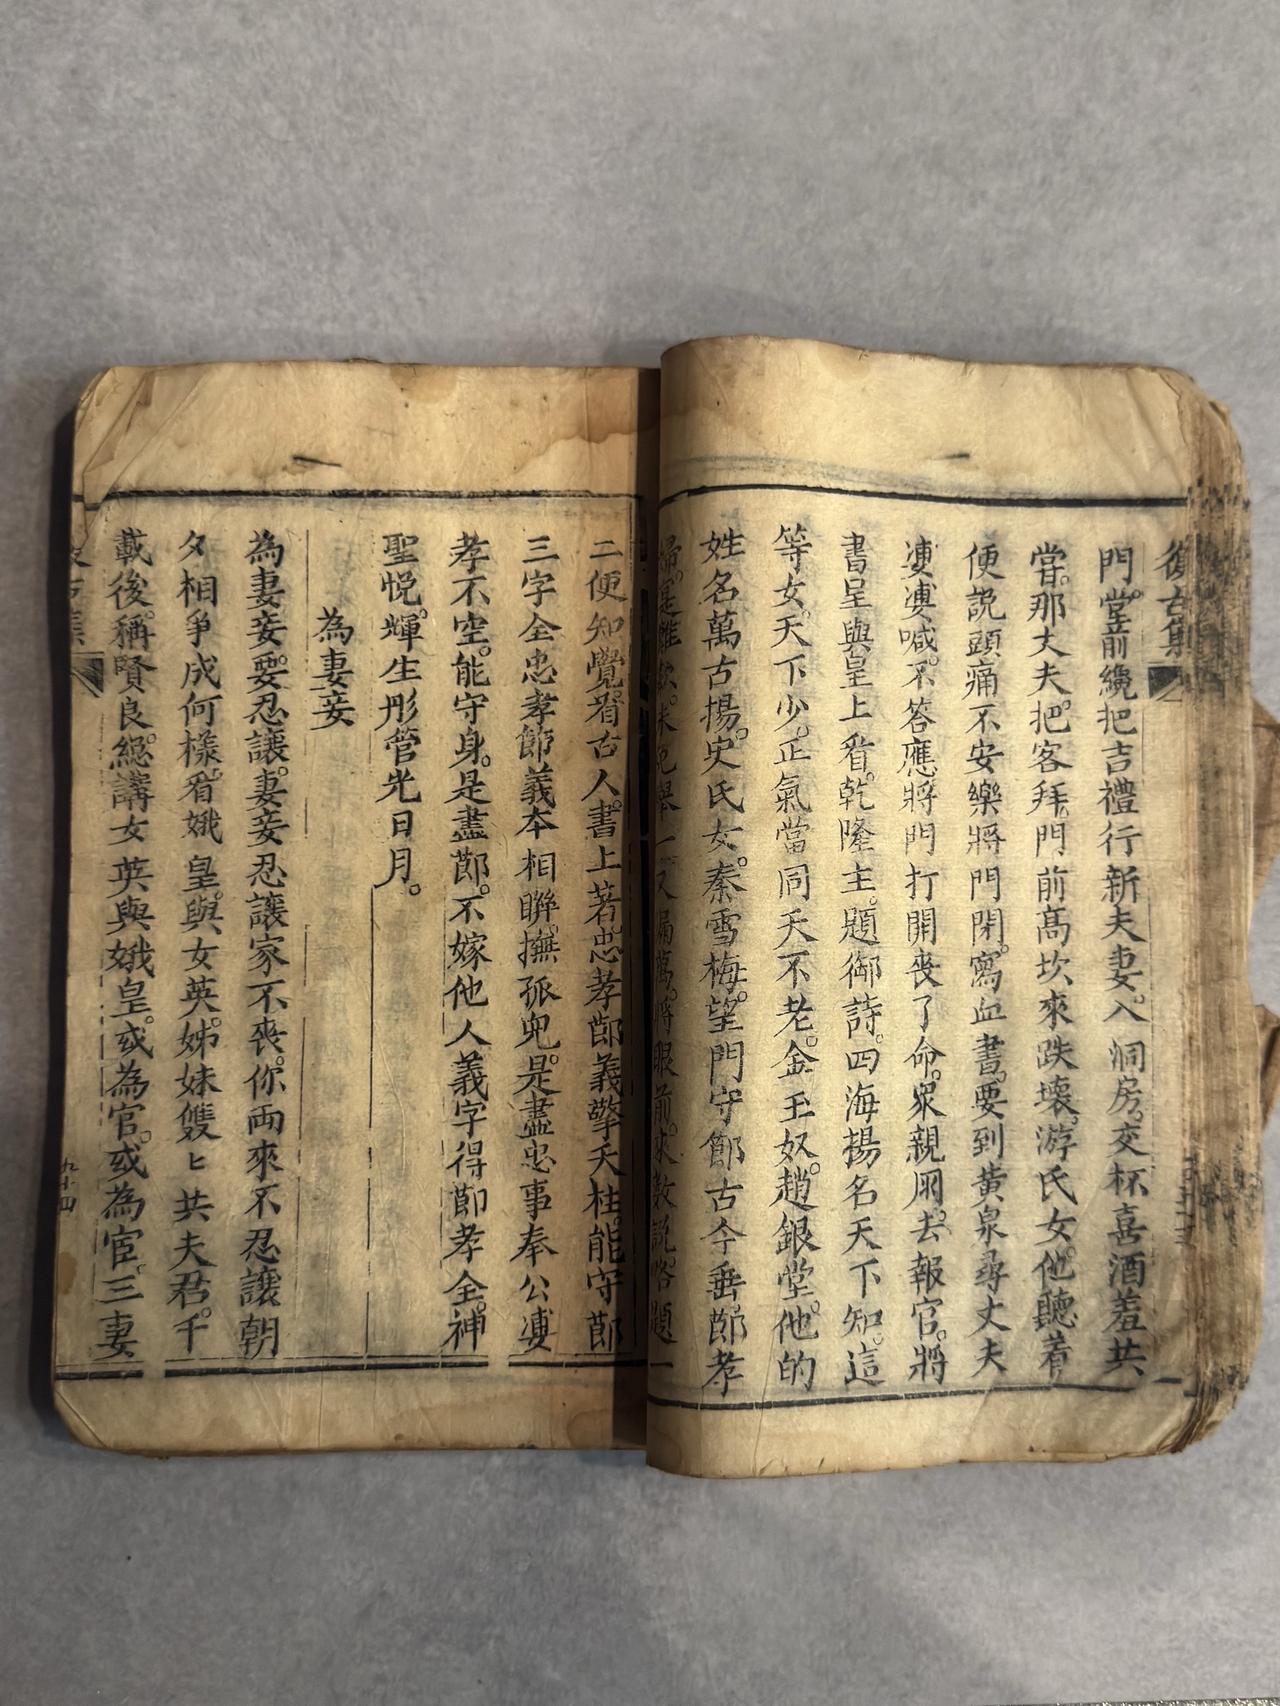 復古集
門。堂前纔把吉禮行新夫妻。入洞房。交杯喜酒羞共
當。那丈夫。把客拜。門前高坎來跌壞。游氏女。他聽着
便説頭痛不安樂將門閉。寫血書。要到黃泉尋丈夫
凄凄喊。不答應將門打開喪了命。眾親朋。去報官。將
書呈與皇上看。乾隆主。題御詩。四海揚名天下知。這
等女。天下少。正氣當同天不老。金玉奴。趙銀堂。他的
姓名萬古揚。史氏女。秦雪梅。望門守節古今垂。節孝
婦。是難數。未免舉一又漏萬。將眼前。來數說。略題一
二便知覺。看古人。書上著。忠孝節義擎天柱。能守節
三字全忠孝節義本相聯。撫孤兒。是盡忠事奉公婆
孝不空。能守身。是盡節。不嫁他人義字得節孝全。神
聖悅。輝生彤管光日月。
為妻妾
為妻妾。要忍讓。妻妾忍讓家不喪。你兩來不忍讓朝
夕相爭成何樣。看娥皇。與女英。姊妹雙ヒ共夫君。千
載後。稱賢良。總講女英與娥皇。或為官。或為宦。三妻
九十四